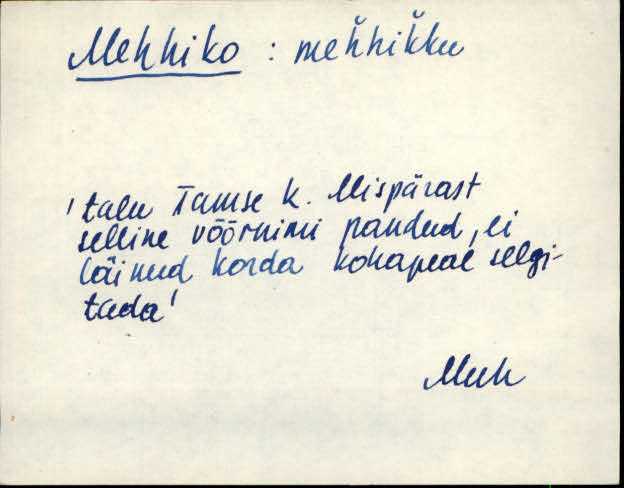 Mehhiko : mȟhikku
'talu Tamse k. Mispärast
selline võõrnimi pandud, ei
läinud korda kohapeal selgi-
tada'
Muh